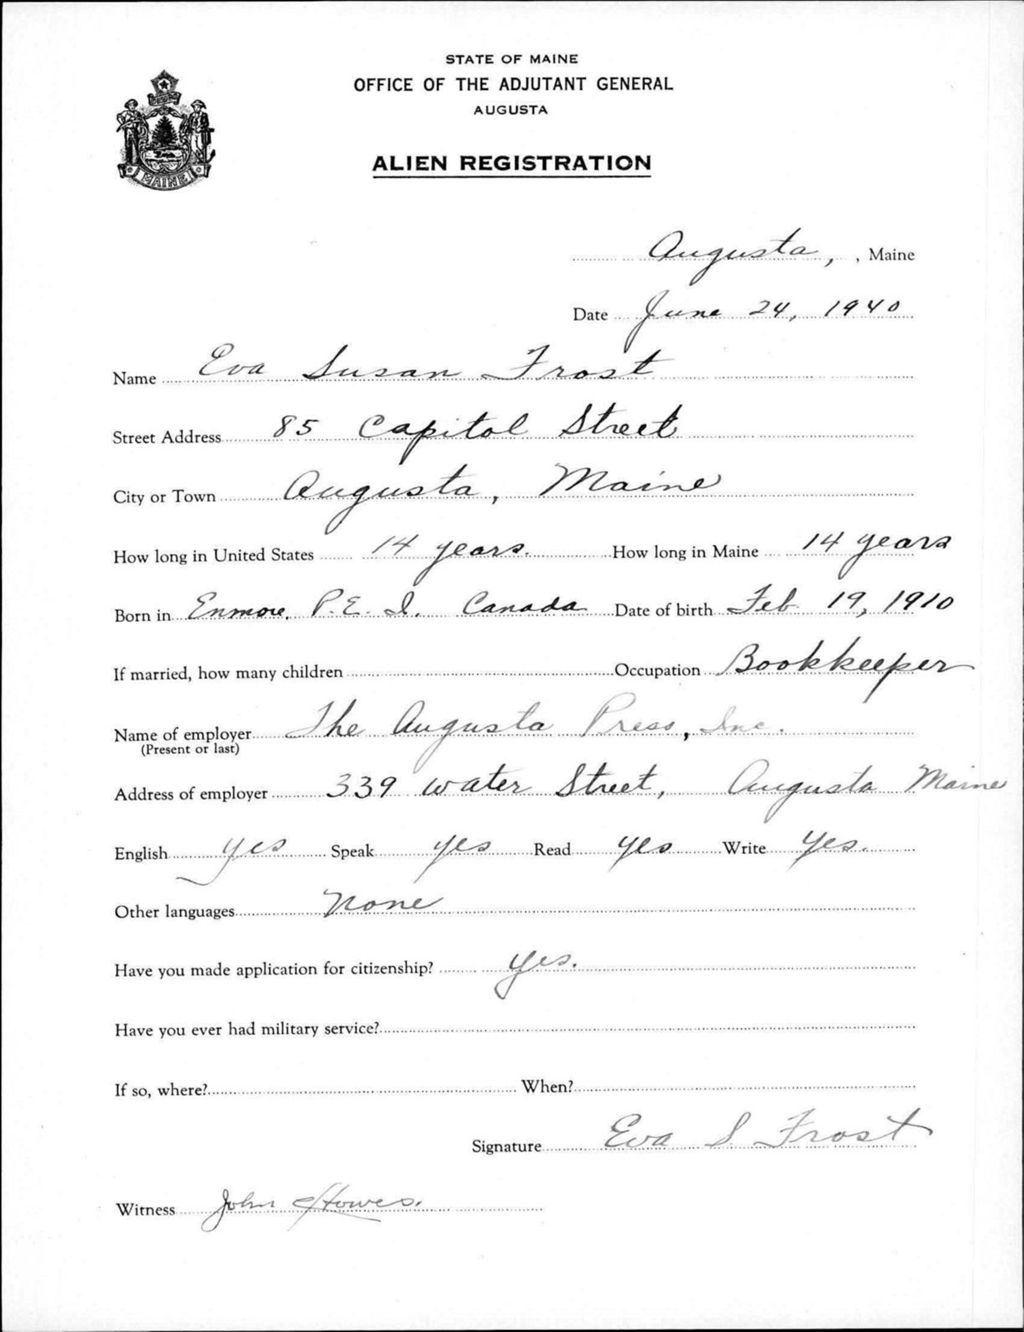 STATE OF MAINE
OFFICE OF THE ADJUTANT GENERAL
AUGUSTA
ALIEN REGISTRATION
MAINE
Augusta, , Maine
Date June 24, 1940
Name Eva Susan Frost
Street Address 85 Capitol Street
City or Town Augusta, Maine
How long in United States 14 years. How long in Maine 14 years
Born in Enmore, P.E.I. Canada Date of birth Feb 19, 1910
If married, how many children Occupation Bookkeeper
Name of employer The Augusta Press, Inc.
(Present or last)
Address of employer 339 Water Street, Augusta Maine
English yes Speak yes Read yes Write yes.
Other languages None
Have you made application for citizenship? yes.
Have you ever had military service?
If so, where? When?
Signature Eva S Frost
Witness John Howes.